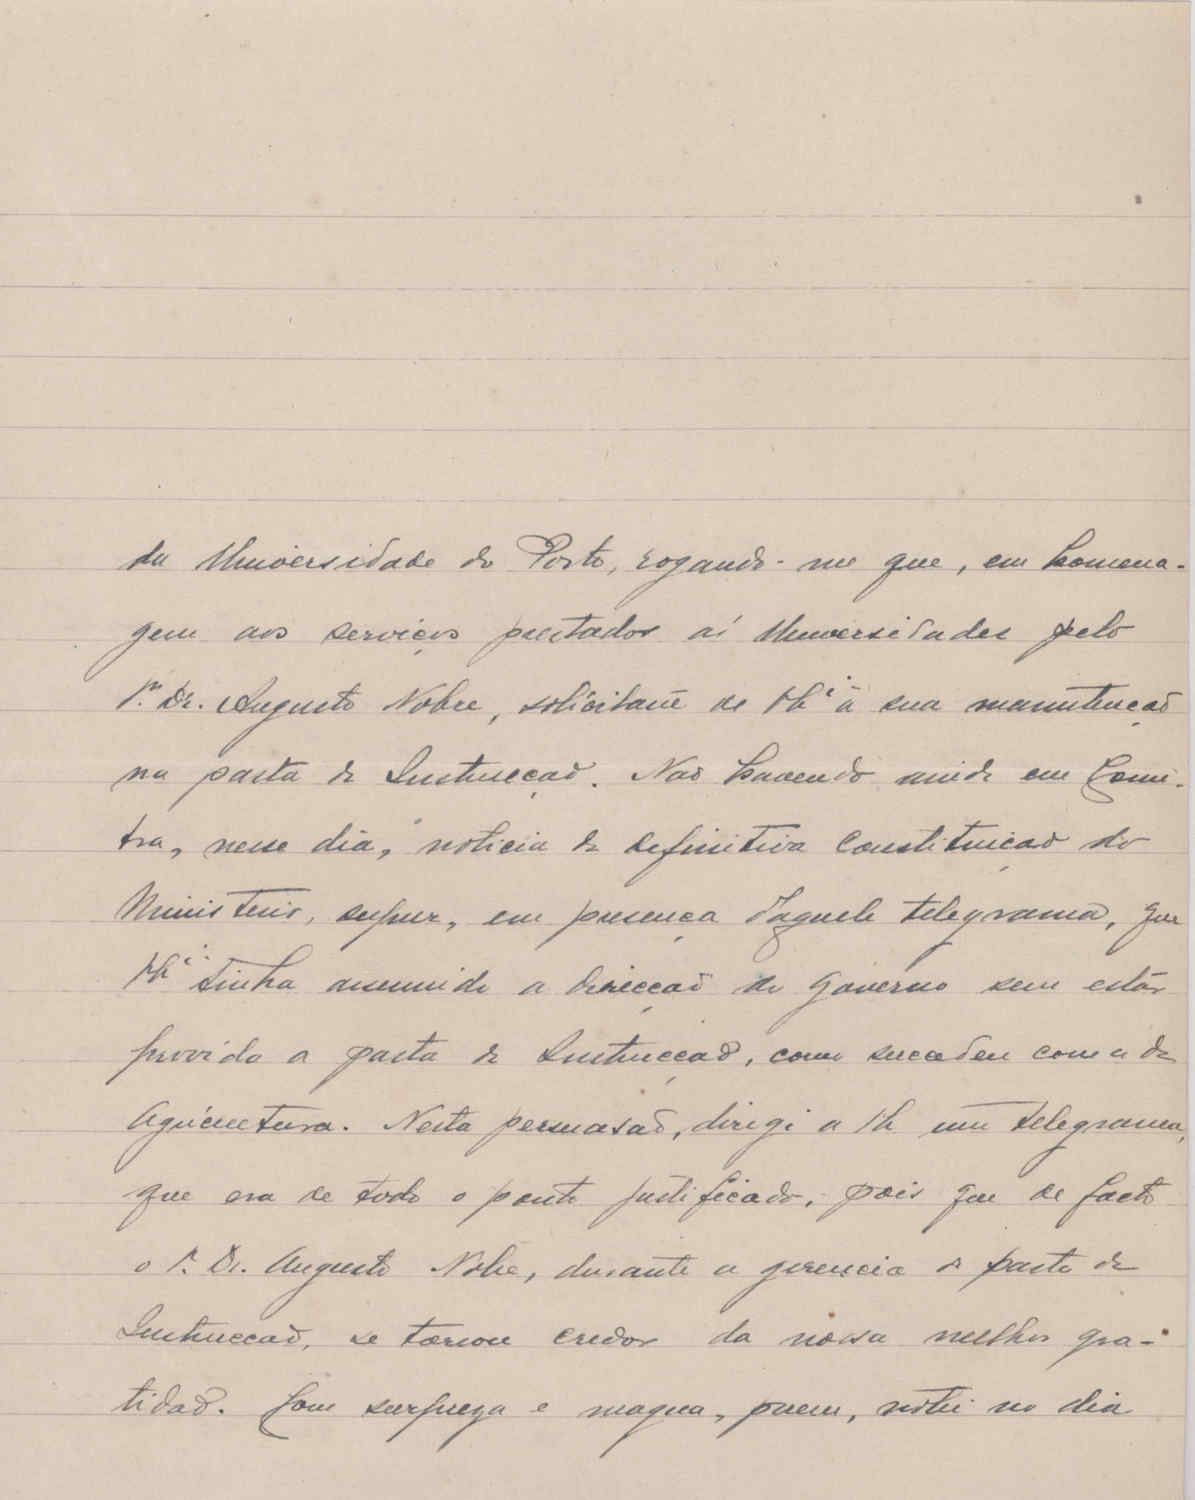 da Universidade do Porto, rogando-me que, em homena-
gem aos serviços prestados ás Universidades pelo
Sr. Dr. Augusto Nobre, solicitasse de V. Ex.ª a sua manutenção
na pasta da Instrucção. Não havendo ainda em Coim-
bra, nesse dia, noticia da definitiva constituição do
Ministerio, supuz, em presença daquele telegrama, que
V. Ex.ª tinha assumido a direcção do governo sem estar
provida a pasta da Instrucção, como sucedeu com a da
Agricultura. Nesta persuasão, dirigi a V. Ex. um telegrama,
que era de todo o ponto justificado, pois que de facto
o Sr. Dr. Augusto Nobre, durante a gerencia da pasta da
Instrucção, se tornou credor da nossa melhor gra-
tidão. Com surpreza e magua, porem, notei no dia